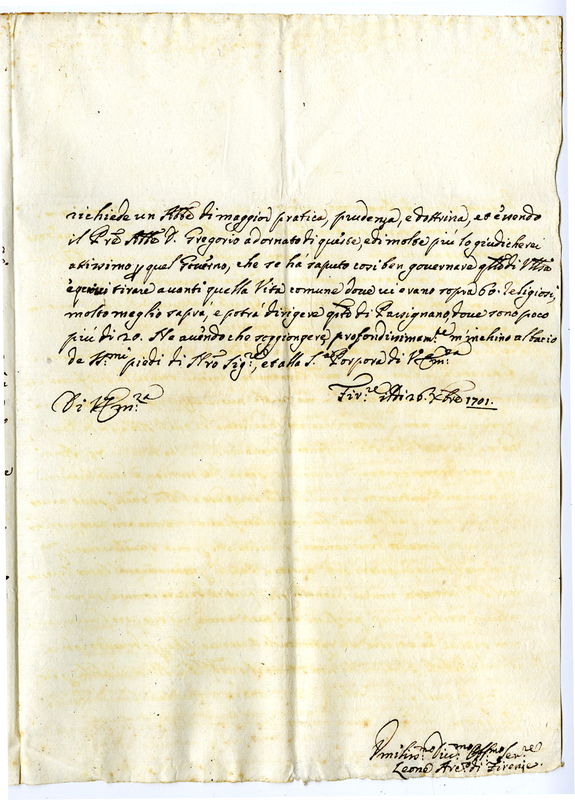 richiede un Abbe di maggior pratica, prudenza, e dottrina, et essendo
il Pre Abbe D. Gregorio adornato di queste, e di molte più lo giudicherei
atissimo p quel Governo, che se hà saputo cosi ben governare qllo di
e quivi tirare avanti quella Vita comune dove vi erano sopra 60. Religiosi,
molto meglio saprà, e potrà dirigere qsto di Passignano, dove sono poco
più di 20. Ne avendo che soggiongere, profondissimam.te m'inchino al bacio
de S.mi piedi di Nro Sig.re, et alla S.a Porpora di V. Em.za
Di V. Em.za
Fir.ze Adi 26. Xbre 1701.
Umiliss.mo Div.mo Obb.mo Ser.re
Leone Arc.o di Firenze.